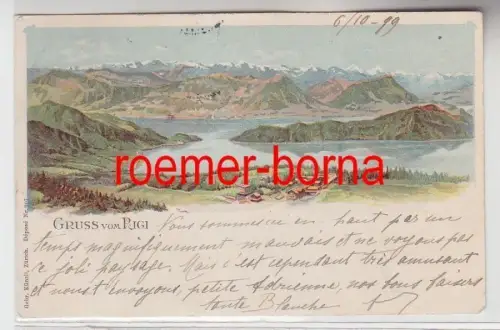 6/10 - 99
roemer-borna
GRUSS VOM RIGI
Nous sommes ici en haut par un
temps magnifiquement mauvais et ne voyons pas
ce joli paysage. Mais c'est cependant très amusant
et nous t'envoyons, petite Adrienne, nos bons baisers
tante Blanche
Gebr. Künzli, Zürich.